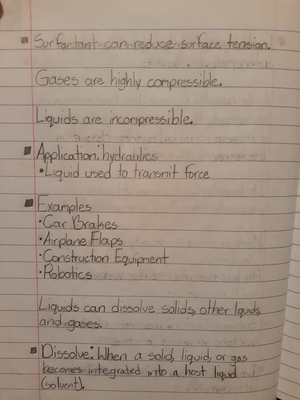 ▪ Surfactant can reduce surface tension.
Gases are highly compressible.
Liquids are incompressible.
▪ Application: hydraulics
• Liquid used to transmit force
▪ Examples
• Car Brakes
• Airplane Flaps
• Construction Equipment
• Robotics
Liquids can dissolve solids, other liquids
and gases.
▪ Dissolve: When a solid, liquid, or gas
becomes integrated into a host liquid
(solvent).